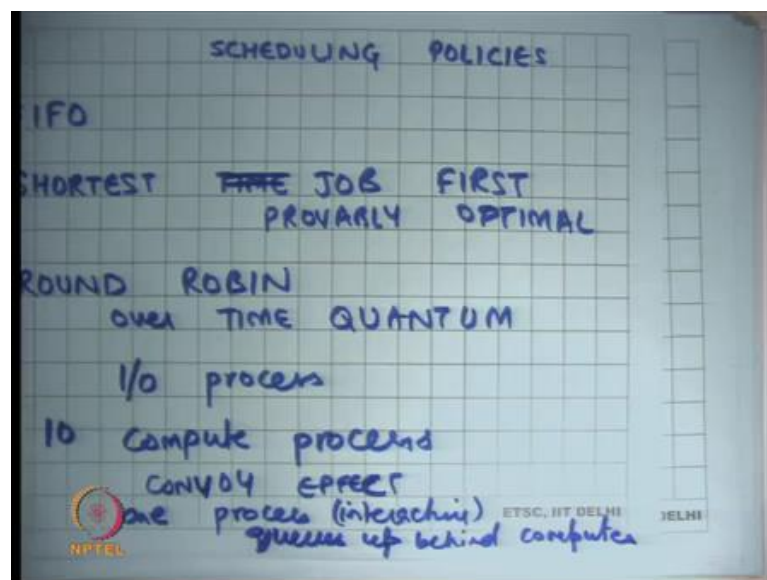 SCHEDULING POLICIES
IFO
SHORTEST TIME JOB FIRST
PROVABLY OPTIMAL
ROUND ROBIN
over TIME QUANTUM
I/O process
10 compute processes
CONVOY EFFECT
one process (interactive)
queues up behind computes
ETSC, IIT DELHI
DELHI
NPTEL